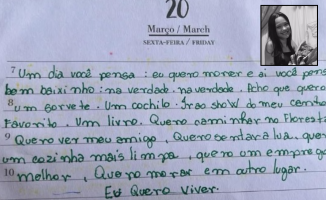 20
Março / March
SEXTA-FEIRA / FRIDAY
7 Um dia você pensa: eu quero morrer e aí você pens
bem baixinho: na verdade, na verdade. Acho que quero
8 um sorvete. Um cochilo. Ir ao show do meu cantor
Favorito. Um livro. Quero caminhar na Floresta
9 Quero ver meu amigo, Quero sentar a lua, quero
um cozinha mais limpa, quero um emprego
10 melhor, Quero morar em outro lugar.
Eu Quero Viver.